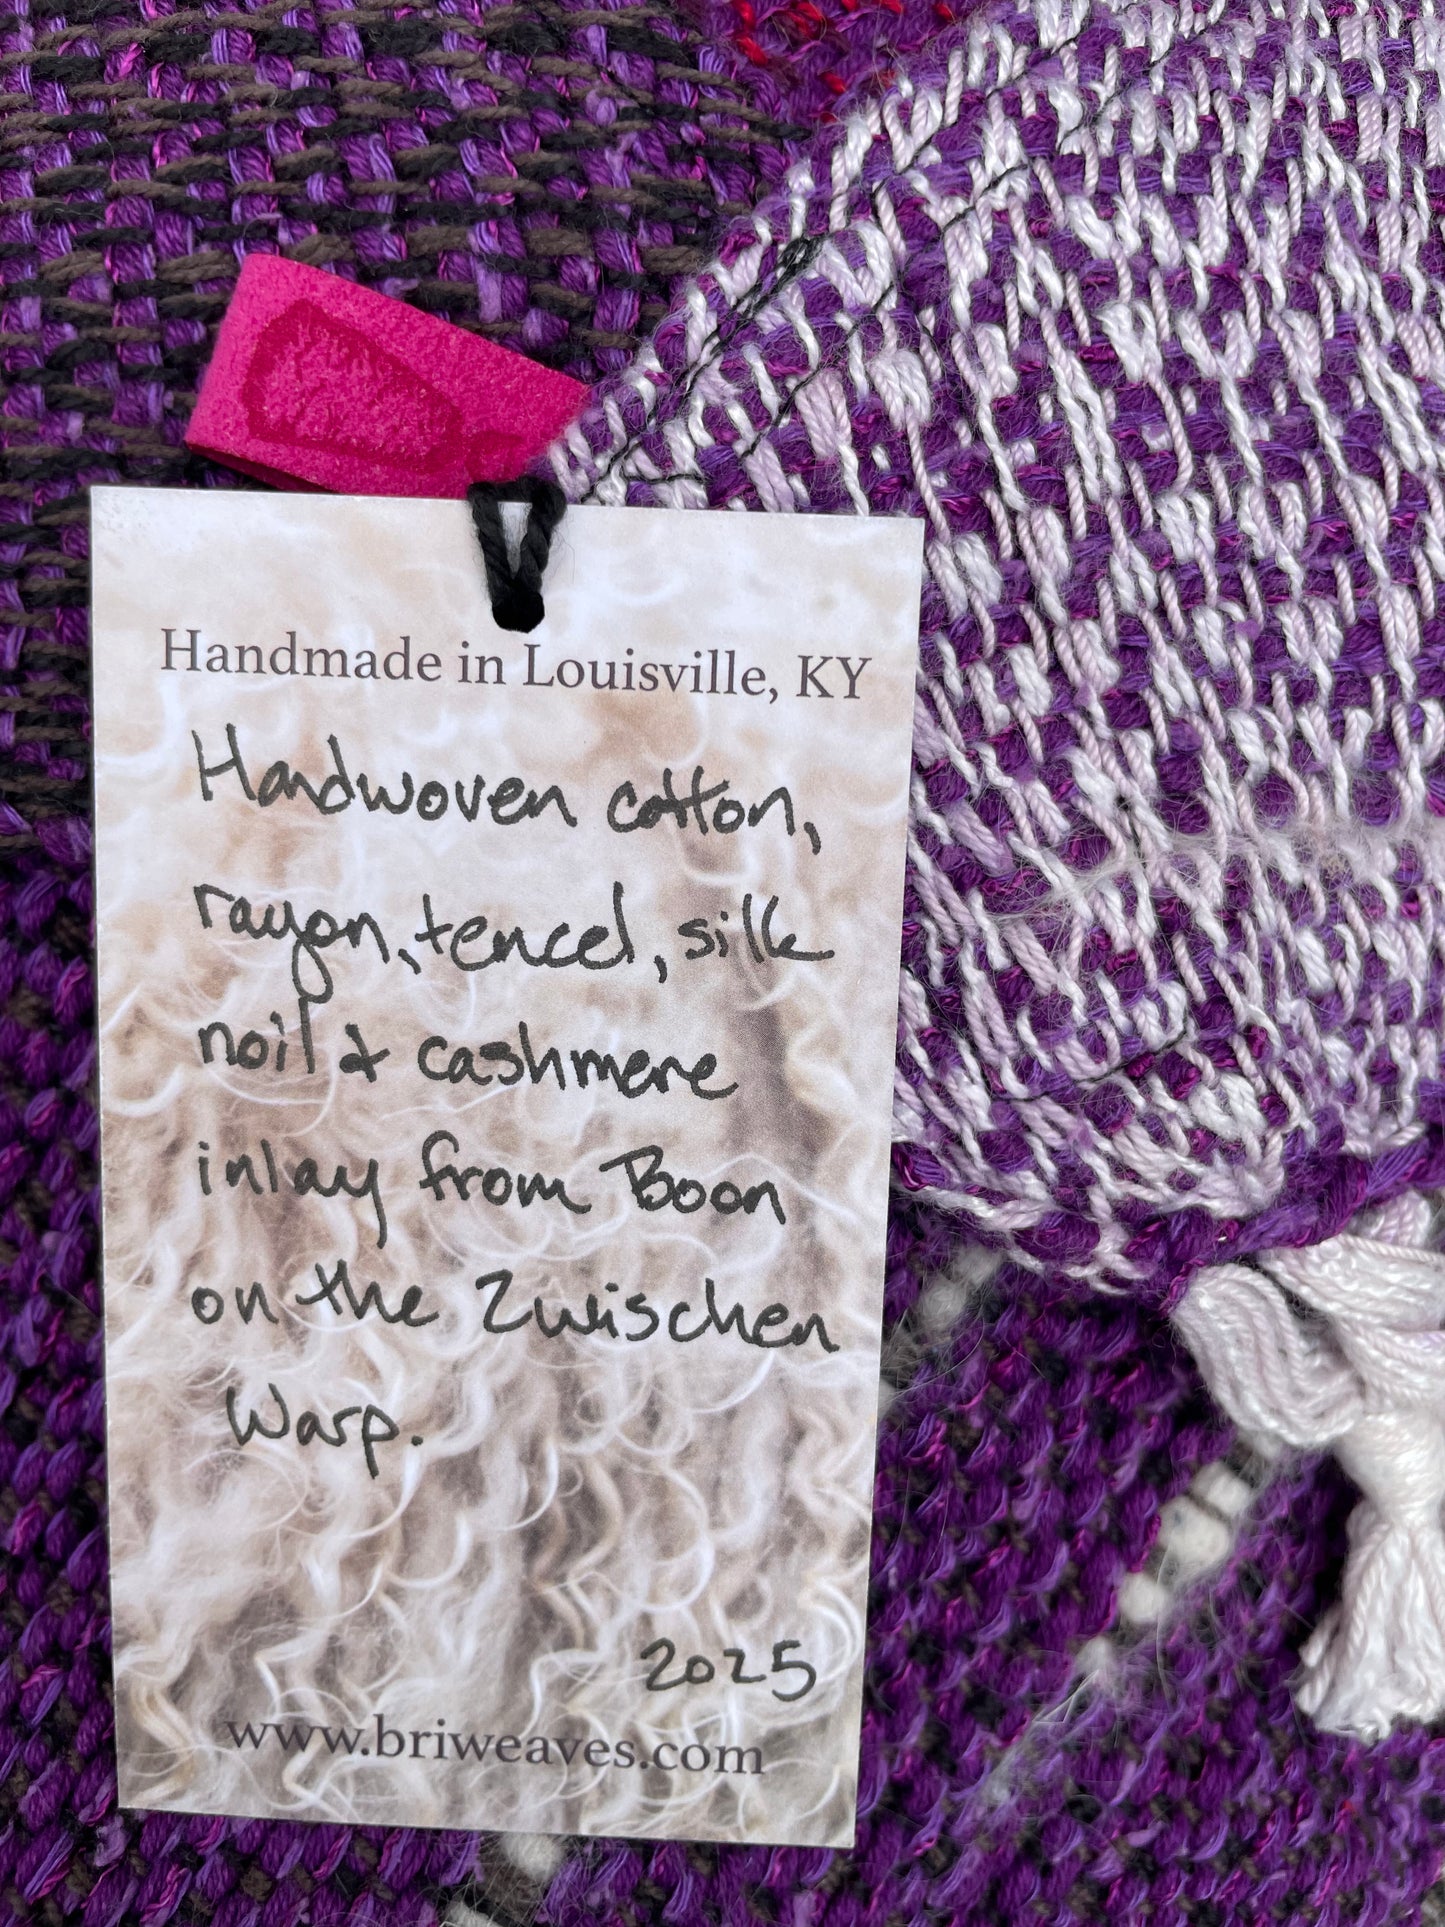 Handmade in Louisville, KY
Handwoven cotton,
rayon, tencel, silk
noil & cashmere
inlay from Boon
on the Zwischen
Warp.
2025
www.briweaves.com